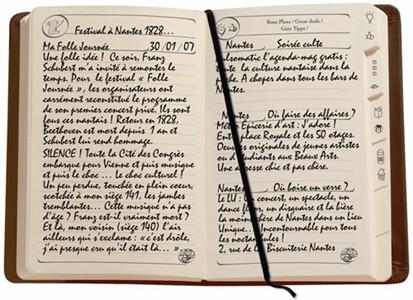 Festival à Nantes 1828...
Ma Folle Journée 30/01/07
Une folle idée ! Ce soir, Franz
Schubert m'a invité à remonter le
temps. Pour le festival « Folle
Journée », les organisateurs ont
carrément reconstitué le programme
de son premier concert privé. Ils sont
fous ces nantais ! Retour en 1828,
Beethoven est mort depuis 1 an et
Schubert lui rend hommage.
SILENCE ! Toute la Cité des Congrès
embarque pour Vienne et puis musique
et puis le choc ... Le choc culturel !
Un peu perdue, touchée en plein coeur,
scotchée à mon siège 141, les jambes
tremblantes... Cette musique n'a pas
d'âge ? Franz est-il vraiment mort ?
Et là, mon voisin (siège 140) l'air
ailleurs qui s'exclame : « c'est drôle,
j'ai presque cru qu'il était là... »
Bons Plans / Great deals /
Gute Tipps /
Nantes Soirée culte
Pulsomatic l'agenda-mag gratis :
toute la culture nantaise dans la
poche. A choper dans tous les bars de
Nantes.
Nantes Où faire des affaires ?
Métis Epicerie d'art : J'adore !
Entre place Royale et les 50 otages.
Oeuvres originales de jeunes artistes
ou étudiants aux Beaux Arts.
Une adresse chic et pas chère.
Nantes Où boire un verre ?
Le LU : Un concert, un spectacle, un
dance floor, un disquaire et la bière
la moins chère de Nantes dans un Lieu
Unique... Incontournable pour tous
les noctambules !
2, rue de la Biscuiterie Nantes